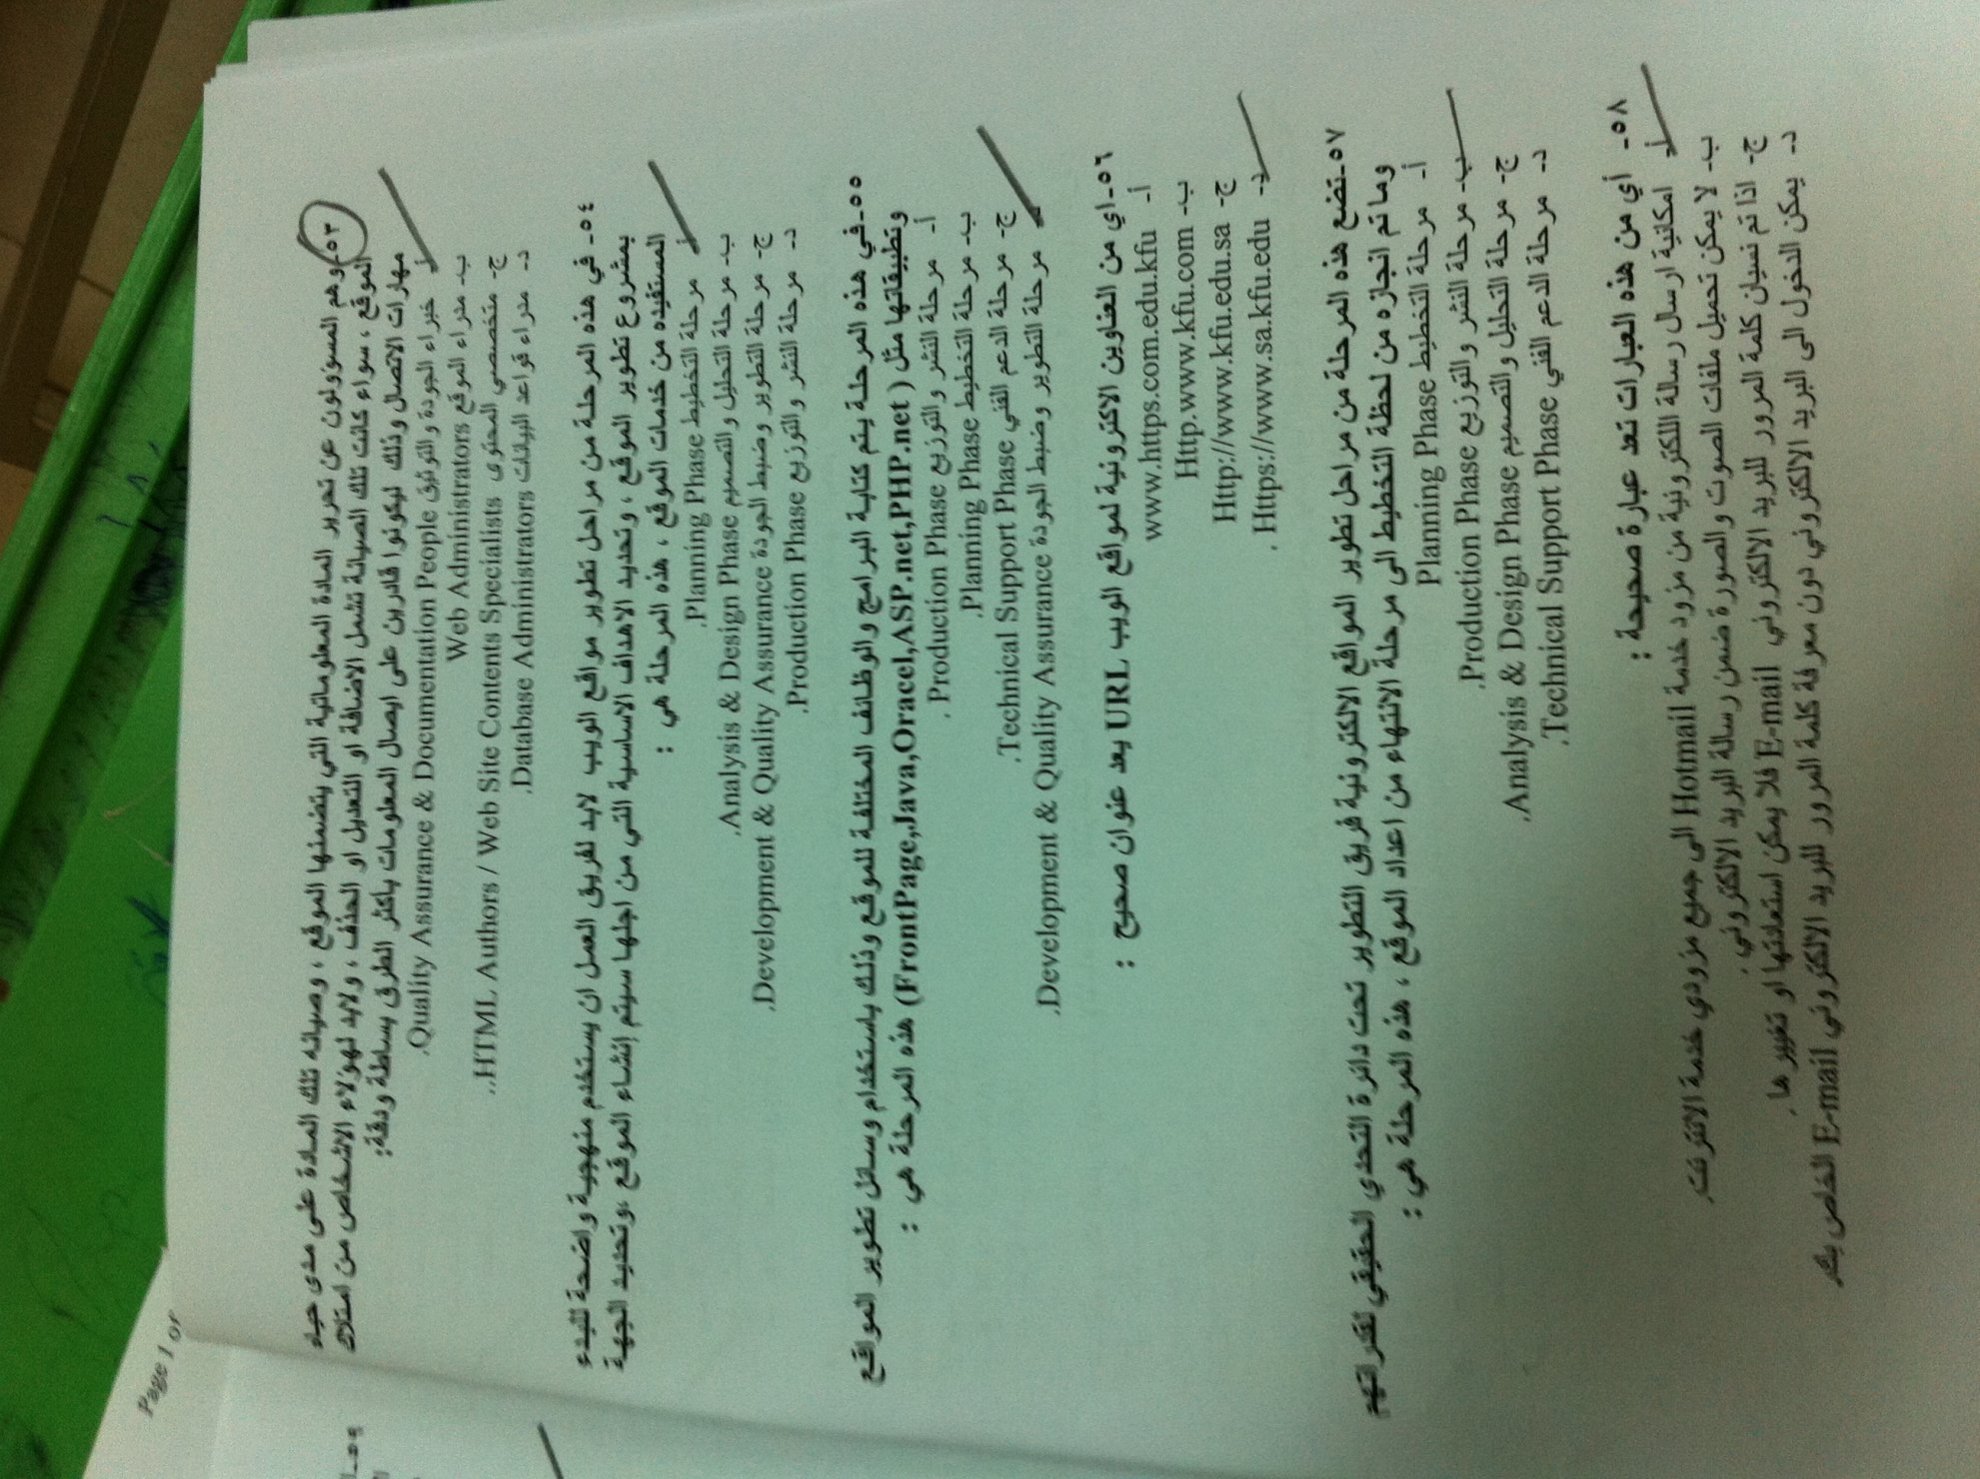 ٥٣- وهم المسؤولون عن تحرير المادة المعلوماتية التي يتضمنها الموقع ، وصيانه تلك المادة على مدى حياه
الموقع ، سواء كانت تلك الصيانة تشمل الاضافة او التعديل او الحذف ، ولابد لهؤلاء الاشخاص من امتلاك
مهارات الاتصال وذلك ليكونوا قادرين على ايصال المعلومات بأكثر الطرق بساطة ودقة:
أ- خبراء الجودة والتوثيق Quality Assurance & Documentation People.
ب- مدراء الموقع Web Administrators
ج- متخصصي المحتوى HTML Authors / Web Site Contents Specialists..
د- مدراء قواعد البيانات Database Administrators.
٥٤- في هذه المرحلة من مراحل تطوير مواقع الويب لابد لفريق العمل ان يستخدم منهجية واضحة للبدء
بمشروع تطوير الموقع ، وتحديد الاهداف الاساسية التي من اجلها سيتم إنشاء الموقع ،وتحديد الجهة
المستفيده من خدمات الموقع ، هذه المرحلة هي :
أ- مرحلة التخطيط Planning Phase.
ب- مرحلة التحليل والتصميم Analysis & Design Phase.
ج- مرحلة التطوير وضبط الجودة Development & Quality Assurance.
د- مرحلة النشر والتوزيع Production Phase.
٥٥-في هذه المرحلة يتم كتابة البرامج والوظائف المختلفة للموقع وذلك باستخدام وسائل تطوير المواقع
وتطبيقاتها مثل ( FrontPage,Java,Oracel,ASP.net,PHP.net) هذه المرحلة هي :
أ- مرحلة النشر والتوزيع Production Phase .
ب- مرحلة التخطيط Planning Phase.
ج- مرحلة الدعم الفني Technical Support Phase.
د- مرحلة التطوير وضبط الجودة Development & Quality Assurance.
٥٦-اي من العناوين الاكترونية لمواقع الويب URL يعد عنوان صحيح :
أ- www.https.com.edu.kfu
ب- Http.www.kfu.com
ج- Http://www.kfu.edu.sa
د- Https://www.sa.kfu.edu .
٥٧-تضع هذه المرحلة من مراحل تطوير المواقع الالكترونية فريق التطوير تحت دائرة التحدي الحقيقي لقدراتهم
وما تم انجازه من لحظة التخطيط الى مرحلة الانتهاء من اعداد الموقع ، هذه المرحلة هي :
أ- مرحلة التخطيط Planning Phase
ب- مرحلة النشر والتوزيع Production Phase.
ج- مرحلة التحليل والتصميم Analysis & Design Phase.
د- مرحلة الدعم الفني Technical Support Phase.
٥٨- أي من هذه العبارات تعد عبارة صحيحة :
أ- امكانية ارسال رسالة الكترونية من مزود خدمة Hotmail الى جميع مزودي خدمة الانترنت.
ب- لا يمكن تحميل ملفات الصوت والصورة ضمن رسالة البريد الالكتروني.
ج- اذا تم نسيان كلمة المرور للبريد الالكتروني E-mail فلا يمكن استعادتها او تغييرها.
د- يمكن الدخول الى البريد الالكتروني دون معرفة كلمة المرور للبريد الالكتروني E-mail الخاص بك.
Page 1 of